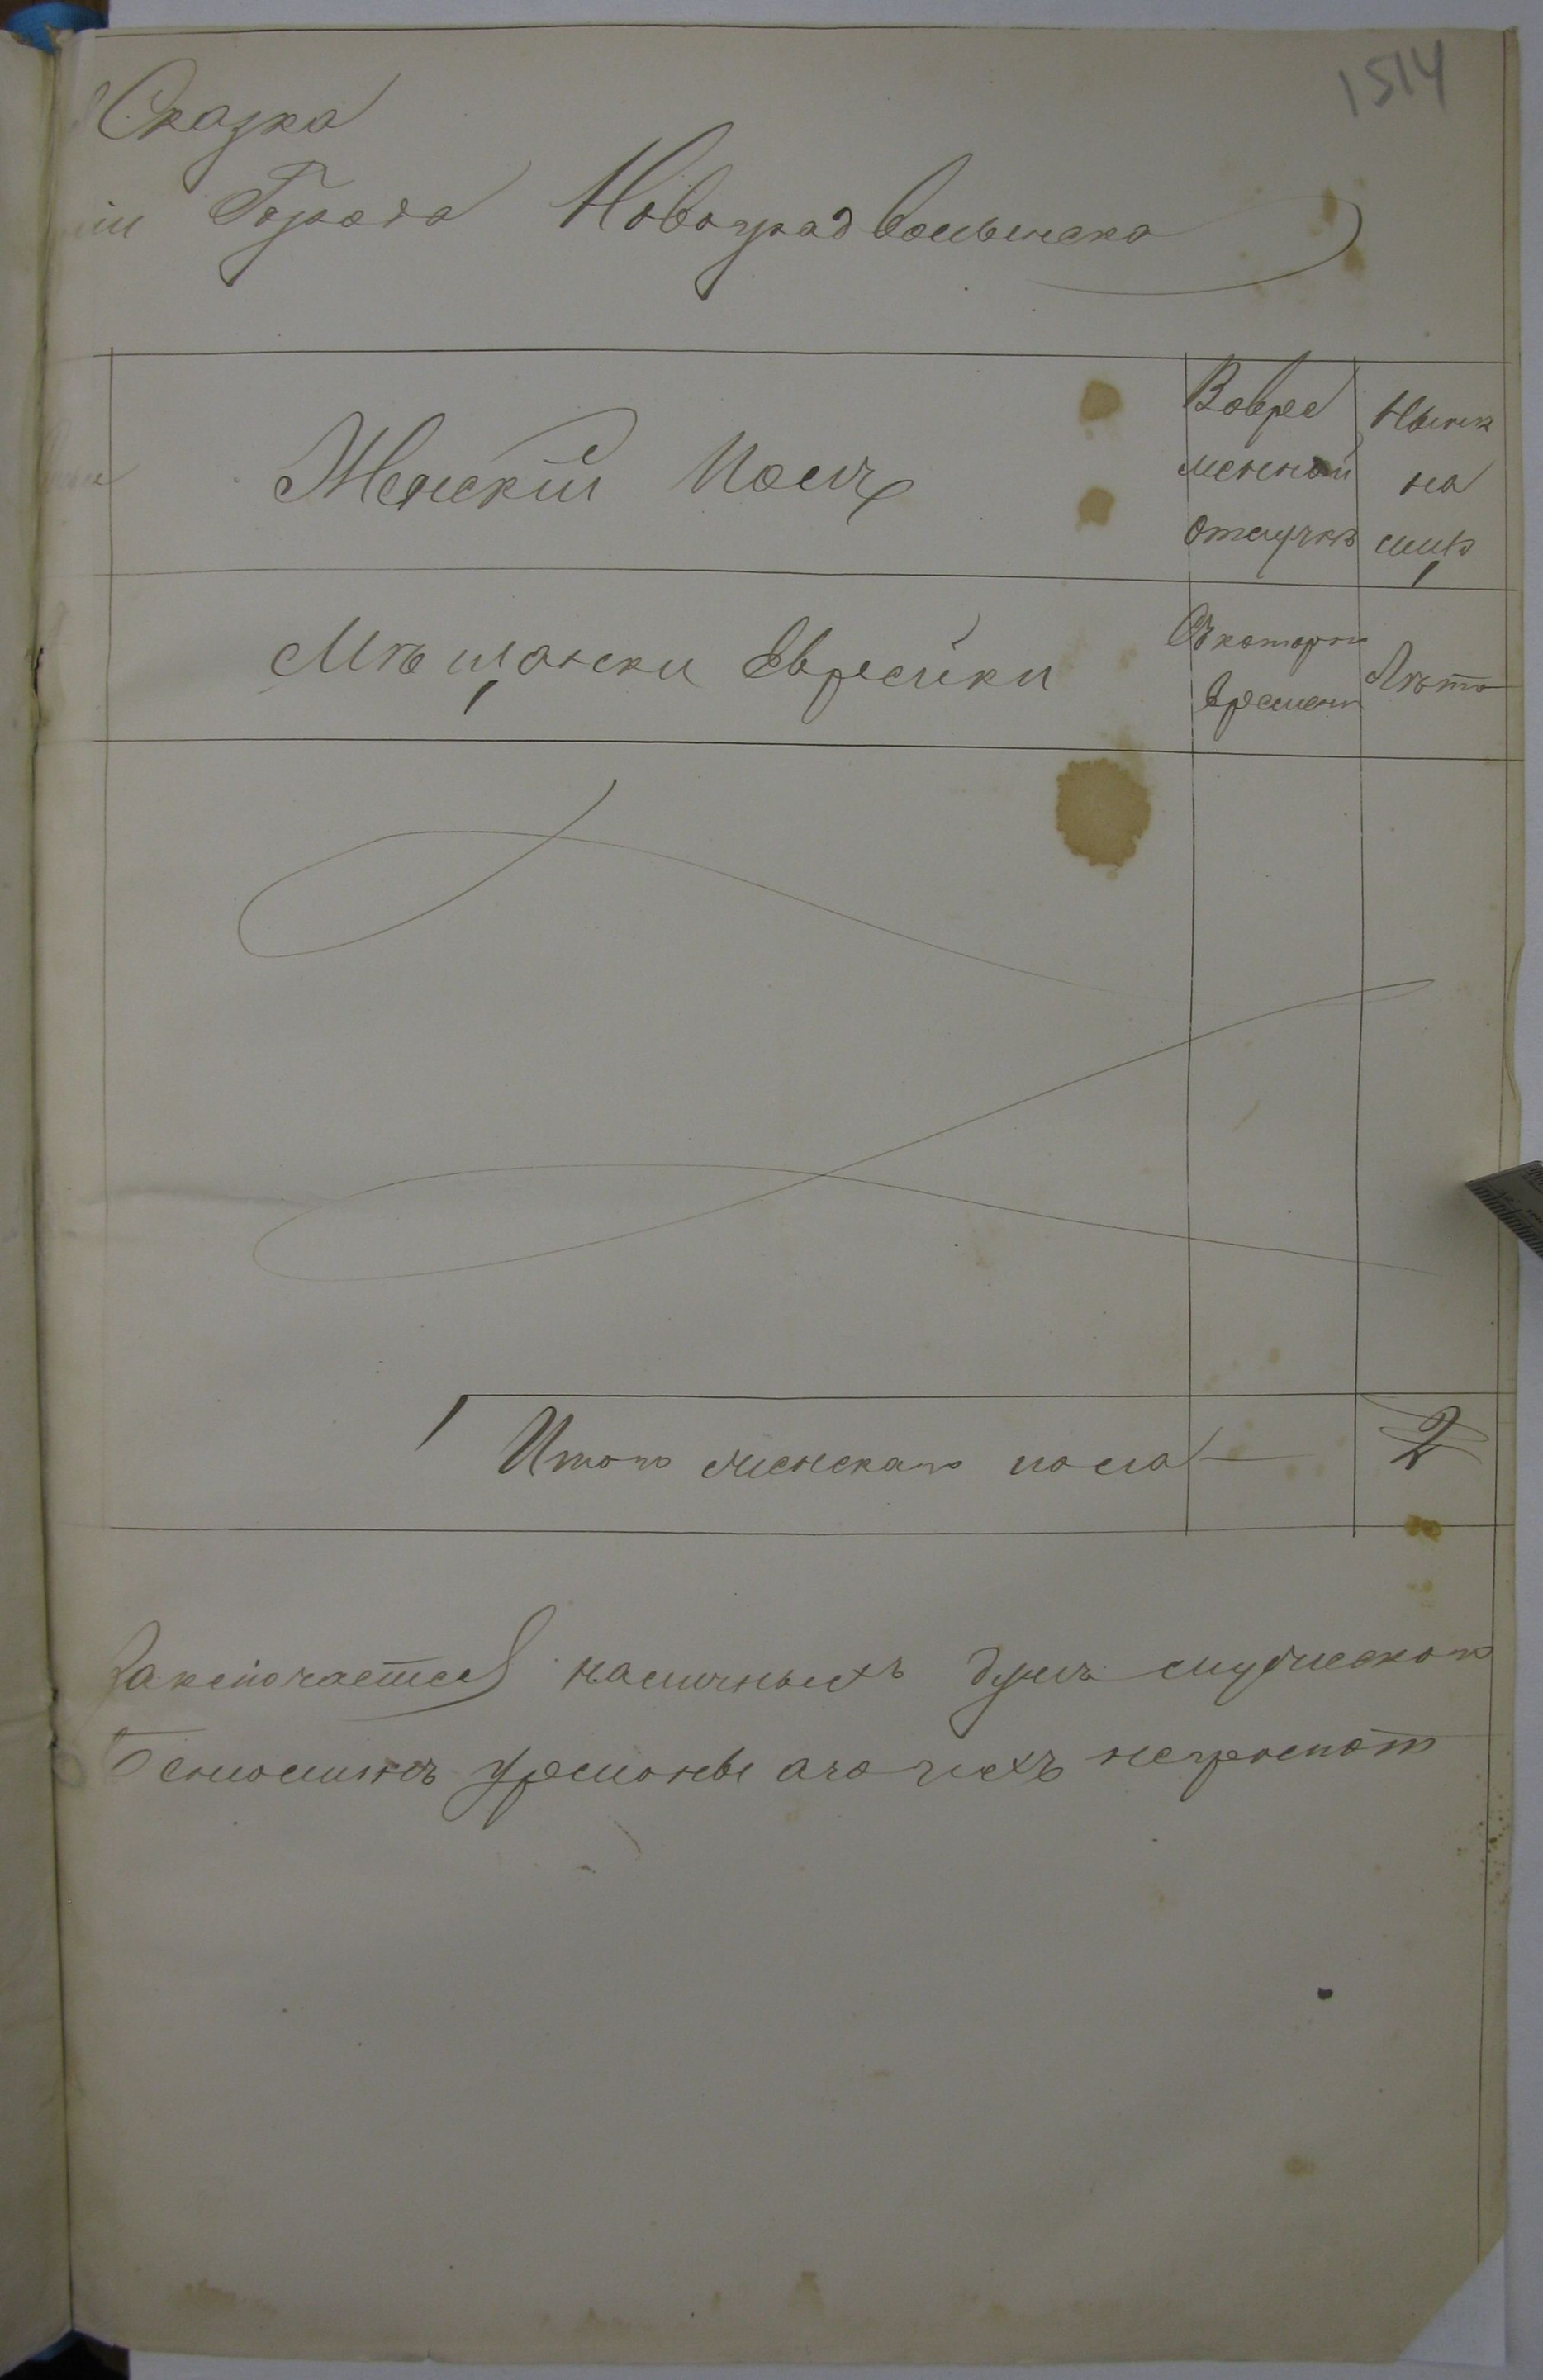 1514
Сказка
Города Новоградволынска
Женский Полъ
Вовре
менной
отлучкѣ
Нынѣ
на
лицо
Мѣщански Еврейки
Съ котораго
времени
Лѣта
Итого женскаго пола — 2
Заключается наличныхъ душъ мужескаго